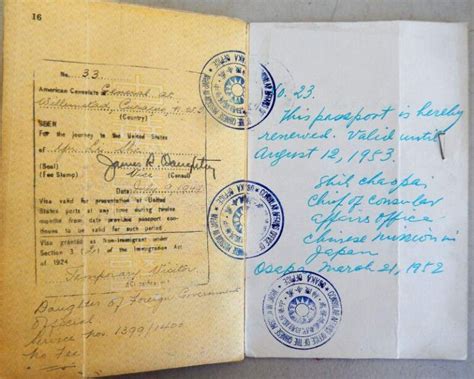 16
No. 33.
American Consulate General at
Willemstad, Curacao, N.
(Country)
SEEN
For the journey to the United States
of
(Seal)
(Fee Stamp)
Vice (Consul)
(Date)
Visa valid for presentation at United
States ports at any time during twelve
months from date provided passport continues
to be valid for such period.
Visa granted as Non-immigrant under
Section 3 (2) of the Immigration Act
of 1924
Temporary Visitor
Daughter of Foreign Government
Official
Service nos 1399/1400
No Fee
o. 23.
This passport is hereby
renewed. Valid until
August 12, 1953.
Shih chaopai
Chief of consular
affairs office
Chinese mission in
Japan
Osaka March 21, 1952
CONSULAR AFFAIRS OFFICE OF THE CHINESE MISSION IN
OSAKA OFFICE